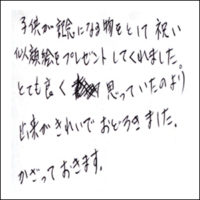 子供が記念になる物をとして祝い
似顔絵をプレゼントしてくれました。
とても良く 思っていたのより
出来がきれいでおどろきました。
かざっておきます。